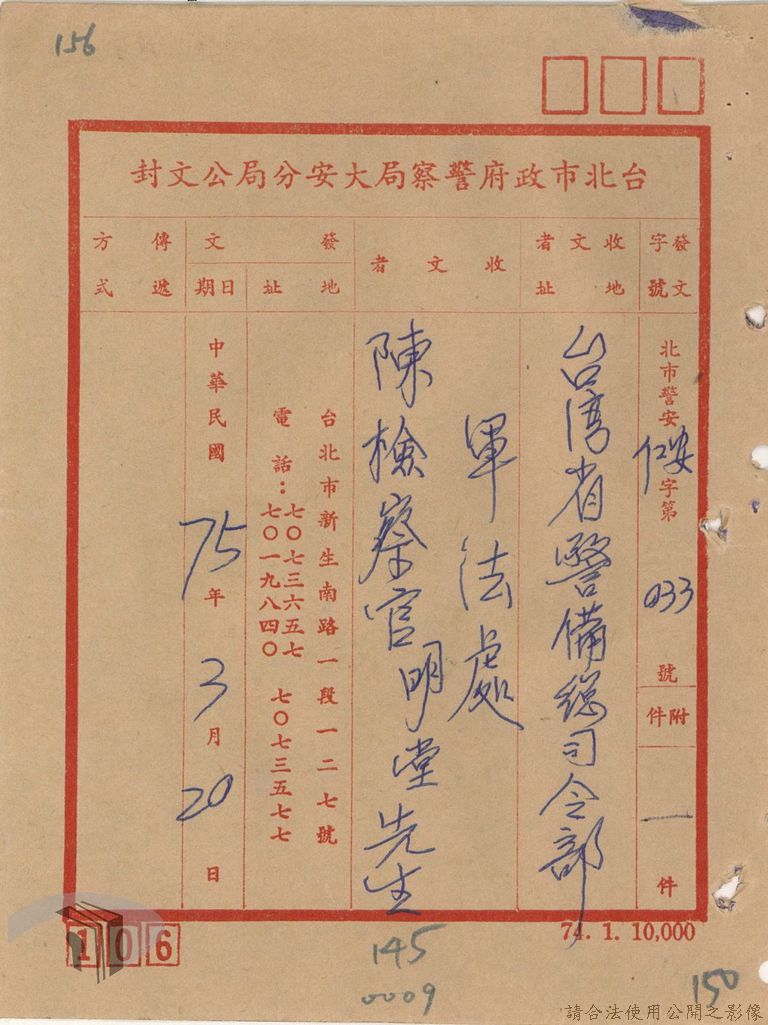 156
台北市政府警察局大安分局公文封
發文字號
收文者地址
收文者
發文
地址
日期
傳遞方式
北市警安仁安字第033號
附件
一件
台湾省警備總司令部
軍法處
陳檢察官明堂先生
台北市新生南路一段一二七號
電話：七〇七三六五七 七〇七三五七七
七〇一九八四〇
中華民國75年3月20日
106
74. 1. 10,000
145
0009
150
請合法使用公開之影像